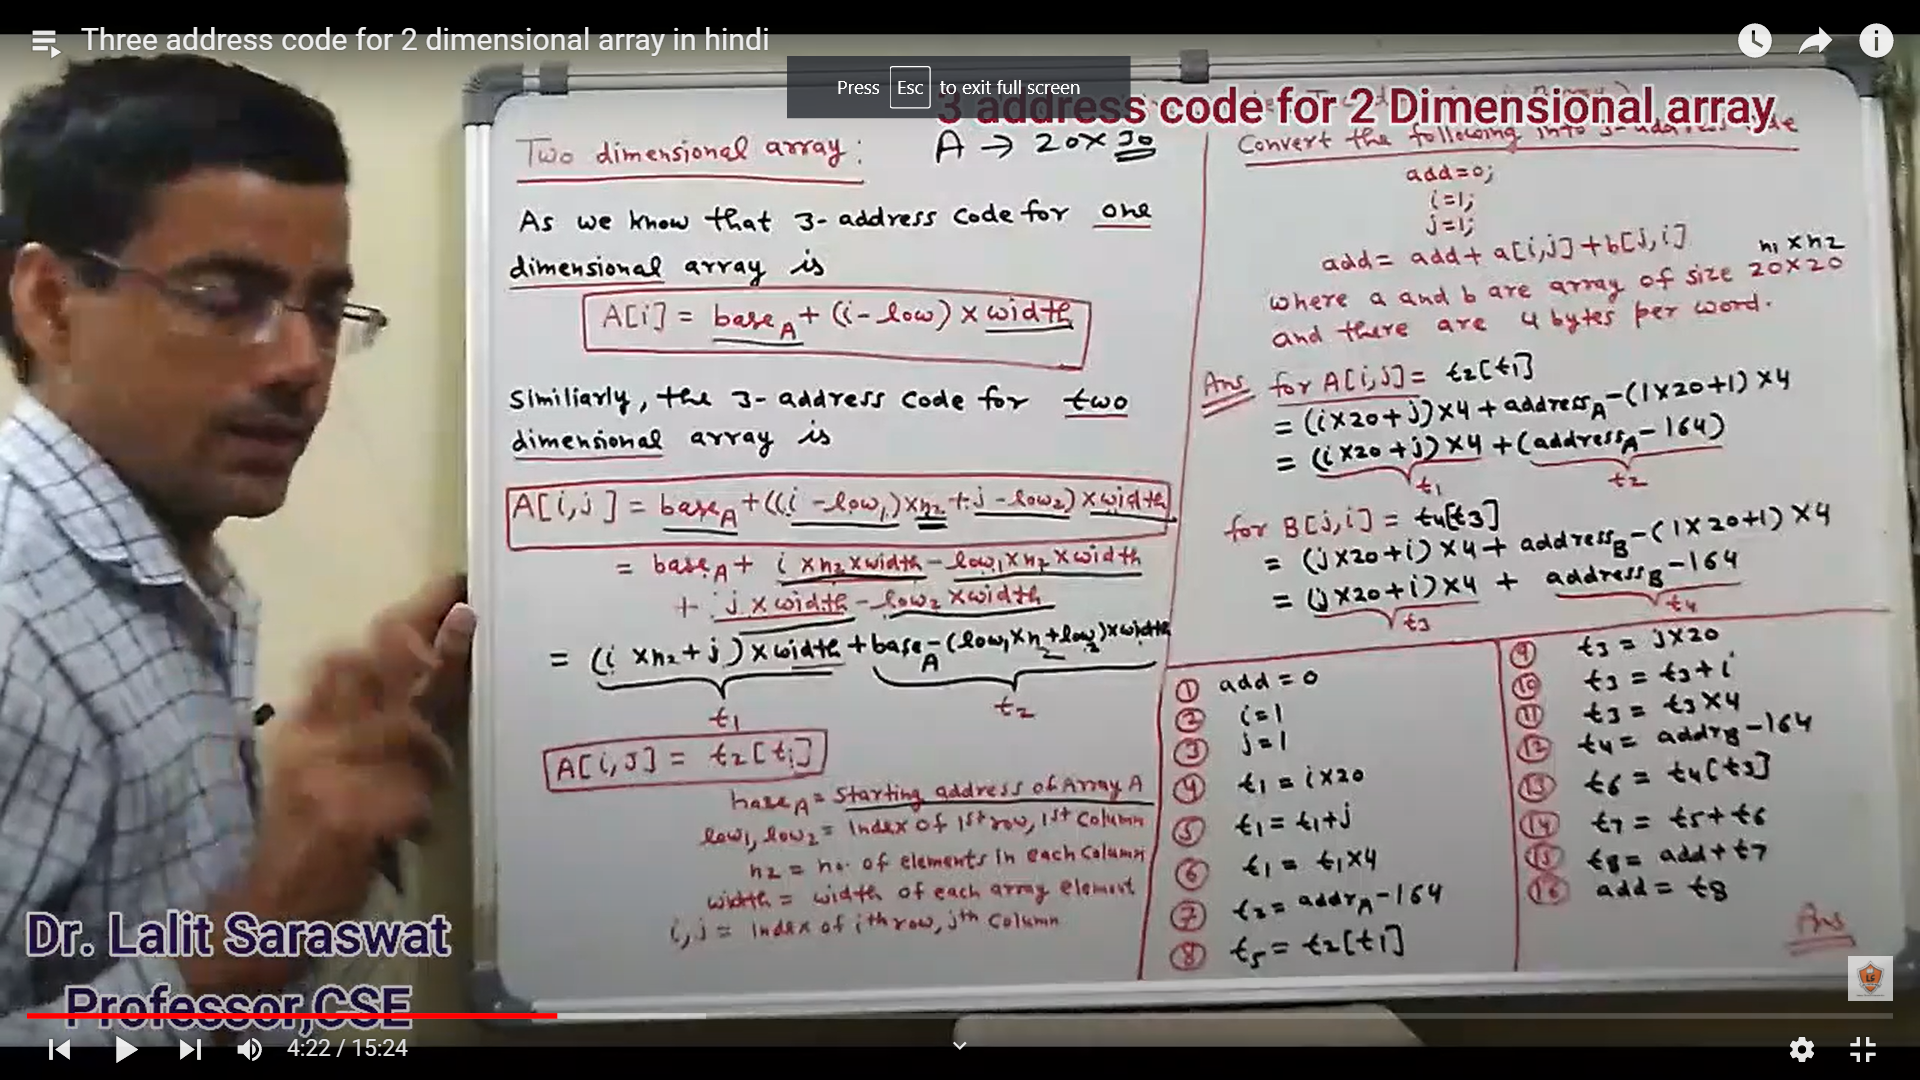 Three address code for 2 dimensional array in hindi
Press Esc to exit full screen
3 address code for 2 Dimensional array
Two dimensional array:
A → 20 × 30
As we know that 3-address code for one
dimensional array is
A[i] = base_A + (i - low) × width
Similiarly, the 3-address code for two
dimensional array is
A[i,j] = base_A + ((i - low₁) × n₂ + j - low₂) × width
= base_A + i × n₂ × width - low₁ × n₂ × width
+ j × width - low₂ × width
= (i × n₂ + j) × width + base_A - (low₁ × n₂ + low₂) × width
t₁
t₂
A[i,J] = t₂[t₁]
base_A = Starting address of Array A
low₁, low₂ = Index of 1st row, 1st column
n₂ = no. of elements in each column
width = width of each array element
i, j = Index of ith row, jth column
Convert the following into 3-address code
add=0;
i=1;
j=1;
add = add + a[i,j] + b[j,i]
n₁ × n₂
where a and b are array of size 20×20
and there are 4 bytes per word.
Ans for A[i,j] = t₂[t₁]
= (i×20+j)×4 + address_A - (1×20+1)×4
= (i×20+j)×4 + (address_A - 164)
t₁
t₂
for B[j,i] = t₄[t₃]
= (j×20+i)×4 + address_B - (1×20+1)×4
= (j×20+i)×4 + address_B - 164
t₃
t₄
① add = 0
② i=1
③ j=1
④ t₁ = i×20
⑤ t₁ = t₁+j
⑥ t₁ = t₁×4
⑦ t₂ = addr_A - 164
⑧ t₅ = t₂[t₁]
⑨ t₃ = j×20
⑩ t₃ = t₃+i
⑪ t₃ = t₃×4
⑫ t₄ = addr_B - 164
⑬ t₆ = t₄[t₃]
⑭ t₇ = t₅+t₆
⑮ t₈ = add+t₇
⑯ add = t₈
Ans
Dr. Lalit Saraswat
Professor,CSE
4:22 / 15:24